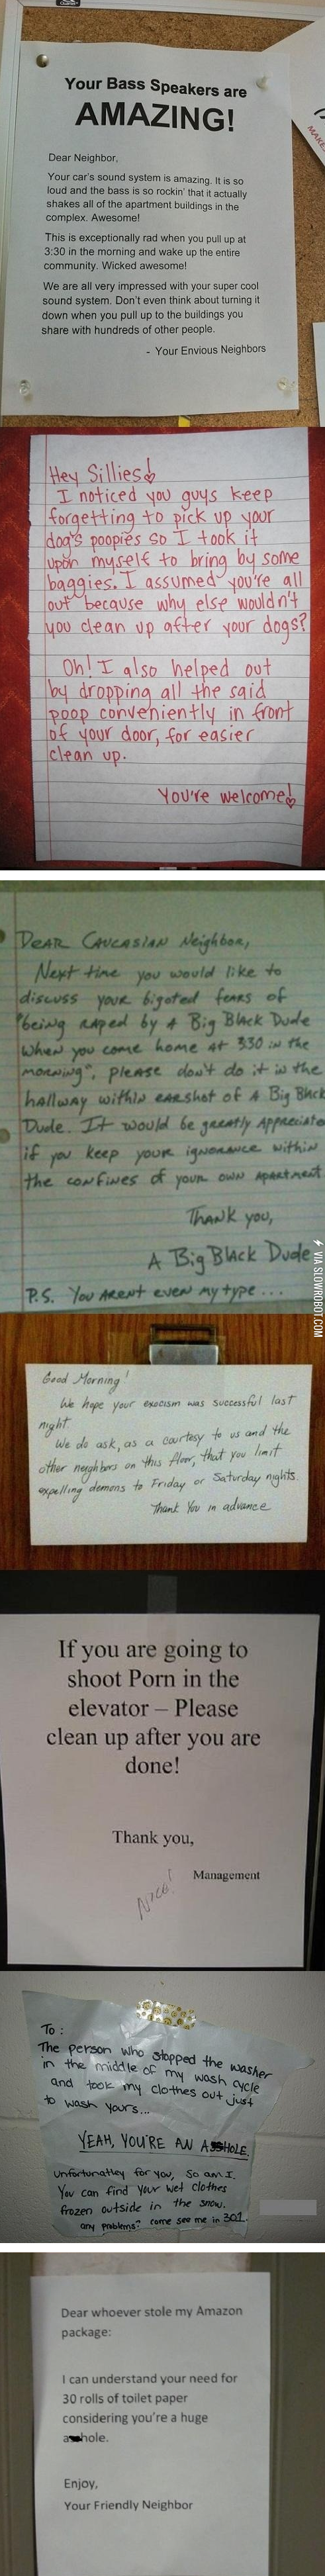 Your Bass Speakers are
AMAZING!
Dear Neighbor,
Your car's sound system is amazing. It is so
loud and the bass is so rockin' that it actually
shakes all of the apartment buildings in the
complex. Awesome!
This is exceptionally rad when you pull up at
3:30 in the morning and wake up the entire
community. Wicked awesome!
We are all very impressed with your super cool
sound system. Don't even think about turning it
down when you pull up to the buildings you
share with hundreds of other people.
- Your Envious Neighbors
MAKE
Hey Sillies!
I noticed you guys keep
forgetting to pick up your
dog's poopies so I took it
upon myself to bring by some
baggies. I assumed you're all
out because why else wouldn't
you clean up after your dogs?
Oh! I also helped out
by dropping all the said
poop conveniently in front
of your door, for easier
clean up.
You're welcome!
Dear Caucasian Neighbor,
Next time you would like to
discuss your bigoted fears of
"being raped by A Big Black Dude
when you come home at 330 in the
morning", please don't do it in the
hallway within earshot of A Big Black
Dude. It would be greatly appreciate
if you keep your ignorance within
the confines of your own apartment
Thank you,
A Big Black Dude
P.S. You arent even my type...
VIA SLOWROBOT.COM
Good Morning!
We hope your exocism was successful last
night.
We do ask, as a courtesy to us and the
other neighbors on this floor, that you limit
expelling demons to Friday or Saturday nights.
Thank You in advance
If you are going to
shoot Porn in the
elevator – Please
clean up after you are
done!
Thank you,
Management
Nice!
To:
The person who stopped the washer
in the middle of my wash cycle
and took my clothes out just
to wash yours...
YEAH, YOU'RE AN ASSHOLE.
Unfortunatley for you, so am I.
You can find your wet clothes
frozen outside in the snow.
any problems? come see me in 301.
Dear whoever stole my Amazon
package:
I can understand your need for
30 rolls of toilet paper
considering you're a huge
a hole.
Enjoy,
Your Friendly Neighbor